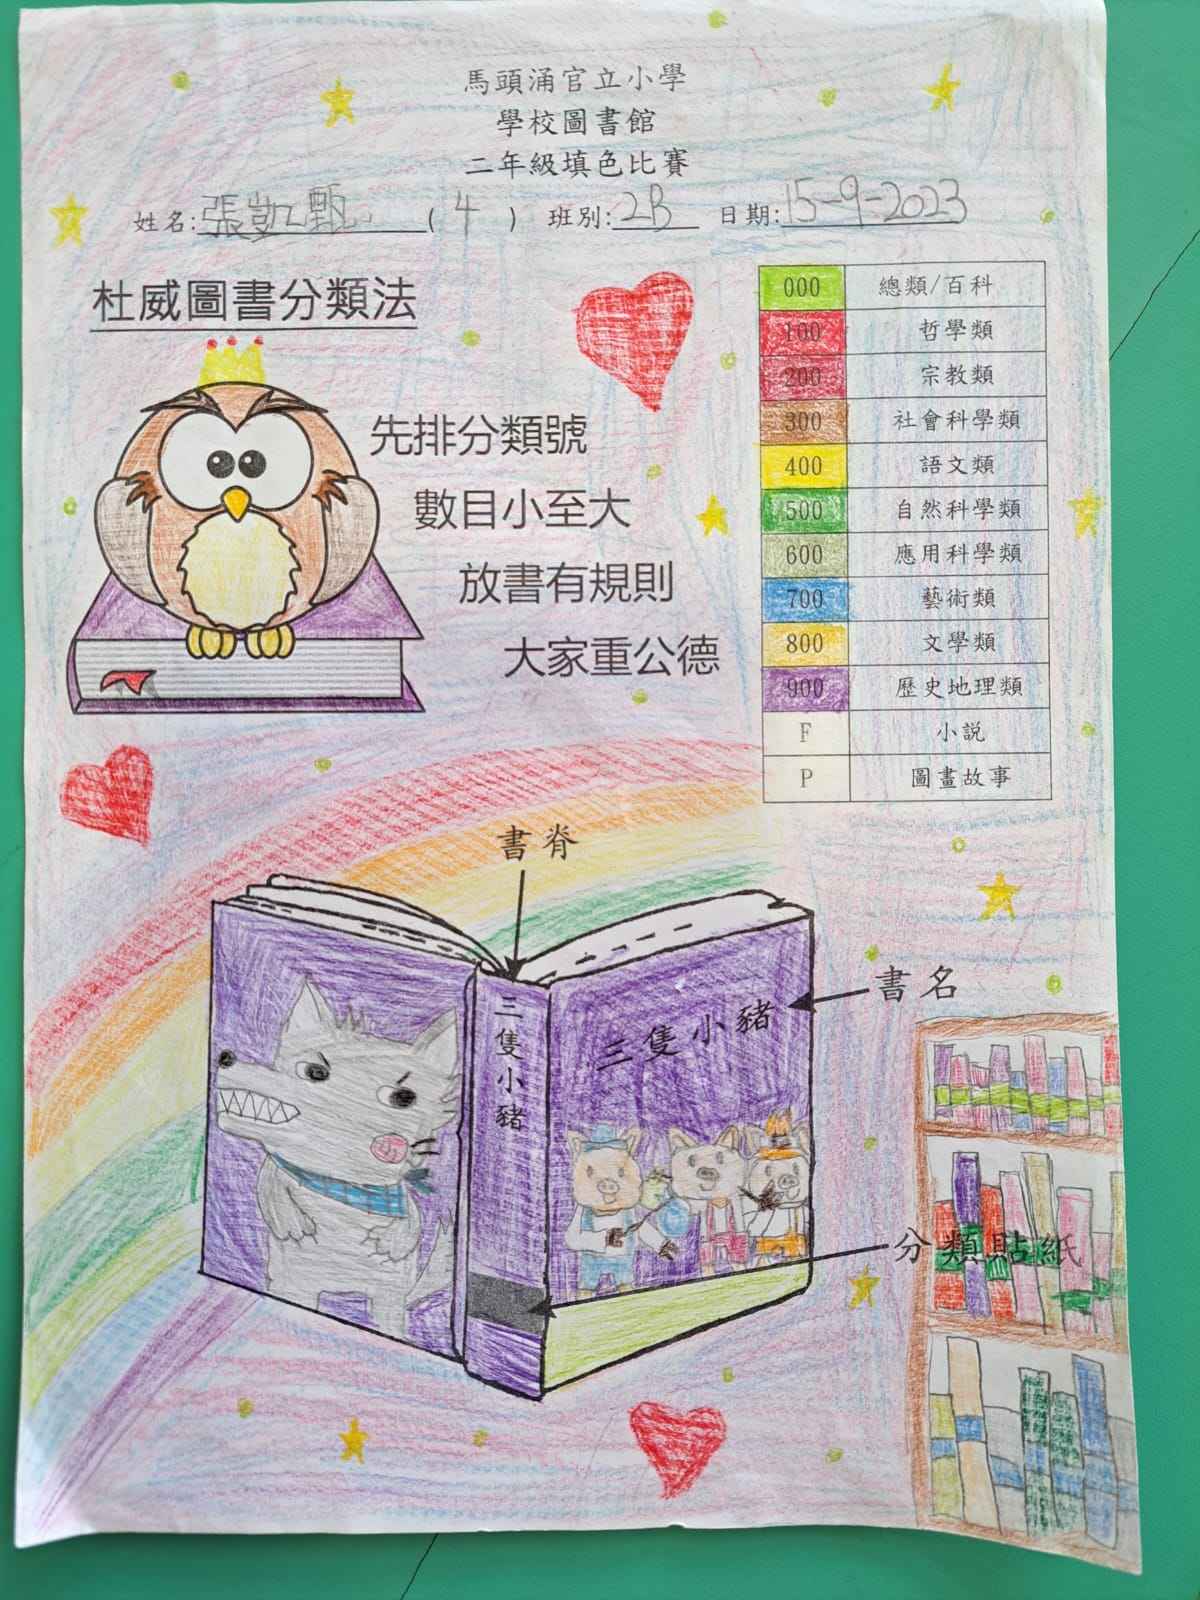 馬頭涌官立小學
學校圖書館
二年級填色比賽
姓名:張凱甄(4) 班別:2B 日期:15-9-2023
杜威圖書分類法
先排分類號
數目小至大
放書有規則
大家重公德
000 總類/百科
100 哲學類
200 宗教類
300 社會科學類
400 語文類
500 自然科學類
600 應用科學類
700 藝術類
800 文學類
900 歷史地理類
F 小説
P 圖畫故事
書脊
書名
三隻小豬
三隻小豬
分類貼紙